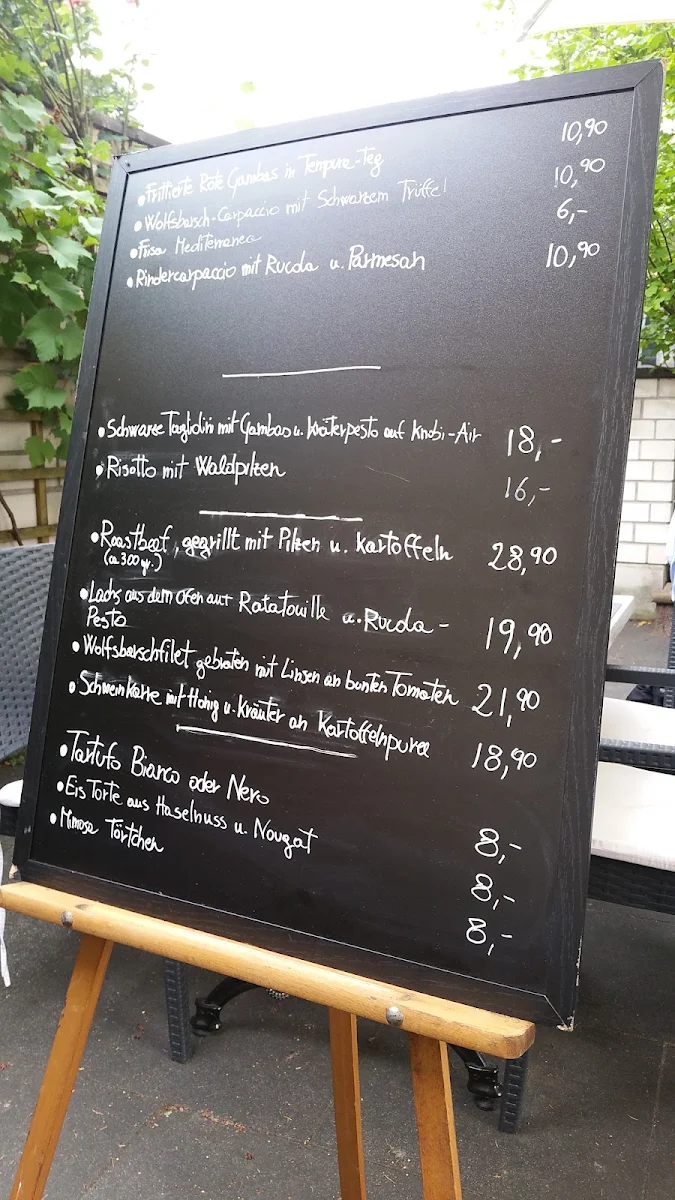 • Frittierte Rote Gambas in Tempura-Teg 10,90
• Wolfsbarsch-Carpaccio mit Schwarzem Trüffel 10,90
• Frisa Mediterranea 6,-
• Rindercarpaccio mit Rucola u. Parmesan 10,90
• Schwarze Taglidin mit Gambas u. Kräterpesto auf Knobi-Air 18,-
• Risotto mit Waldpilzen 16,-
• Roastbeef, gegrillt mit Pilzen u. Kartoffeln 28,90
(ca 300 gr.)
• Lachs aus dem Ofen auf Ratatouille u. Rucola- 19,90
Pesto
• Wolfsbarschfilet gebraten mit Linsen an bunten Tomaten 21,90
• Schweinkarre mit Honig u. Kräuter an Kartoffelnpüree 18,90
• Tartufo Bianco oder Nero 8,-
• Eis Torte aus Haselnuss u. Nougat 8,-
• Mimosa Törtchen 8,-